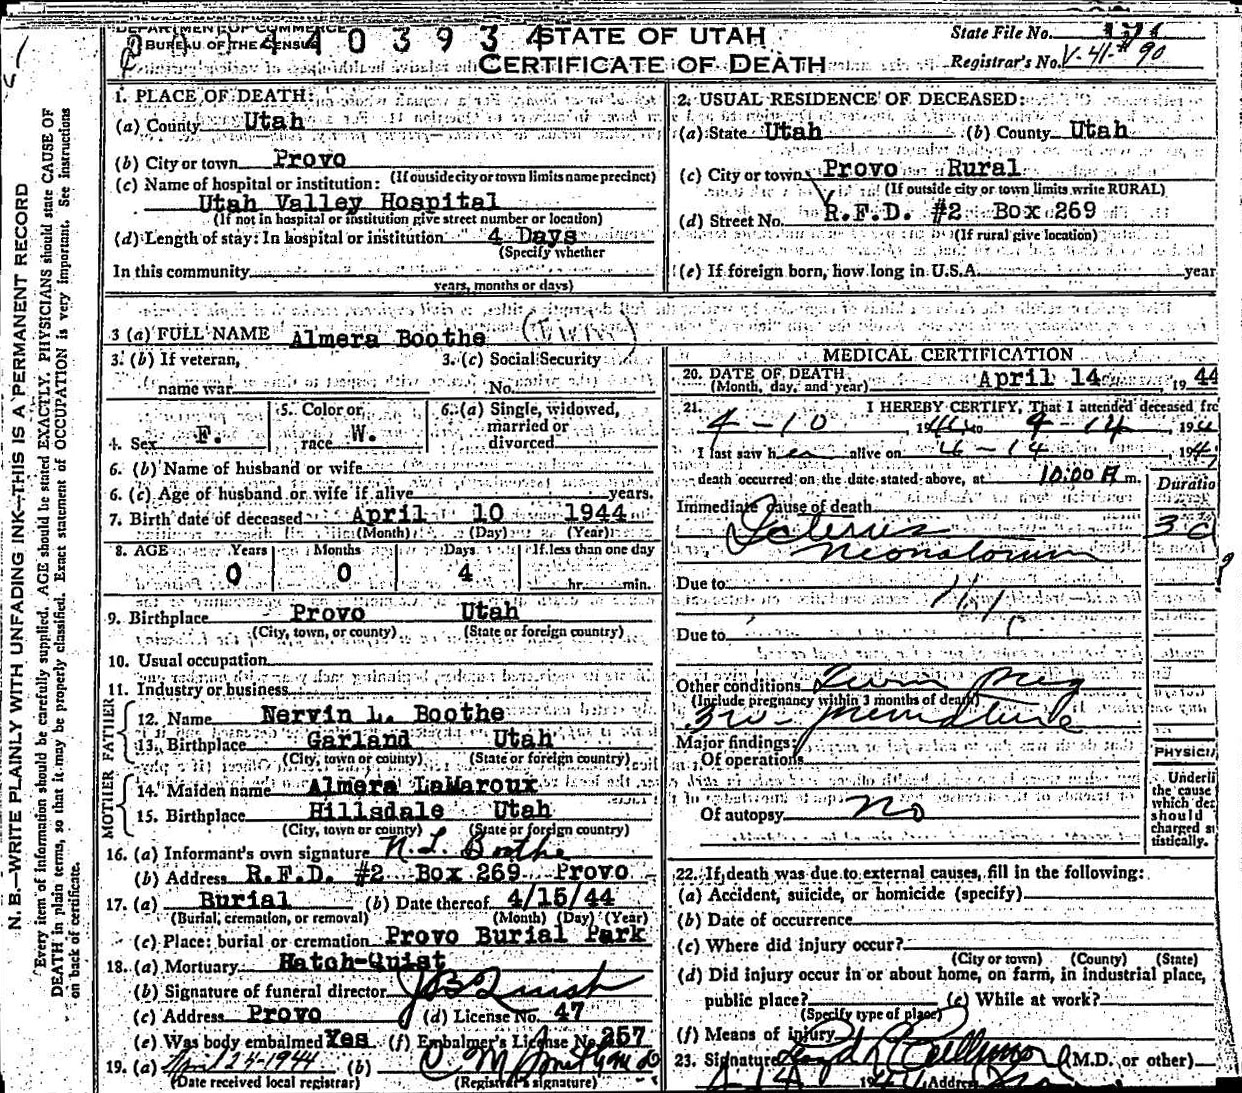 DEPARTMENT OF COMMERCE
BUREAU OF THE CENSUS
4 4 0 3 9 3 4
STATE OF UTAH
CERTIFICATE OF DEATH
State File No.
Registrar's No. V-41-#90
1. PLACE OF DEATH:
(a) County Utah
(b) City or town Provo
(If outside city or town limits name precinct)
(c) Name of hospital or institution:
Utah Valley Hospital
(If not in hospital or institution give street number or location)
(d) Length of stay: In hospital or institution 4 Days
(Specify whether
In this community
years, months or days)
2. USUAL RESIDENCE OF DECEASED:
(a) State Utah (b) County Utah
(c) City or town Provo Rural
(If outside city or town limits write RURAL)
(d) Street No. R.F.D. #2 Box 269
(If rural give location)
(e) If foreign born, how long in U.S.A. year
3 (a) FULL NAME Almera Boothe (Twin)
3. (b) If veteran,
name war
3. (c) Social Security
No.
4. Sex F.
5. Color or
race W.
6. (a) Single, widowed,
married or
divorced
6. (b) Name of husband or wife
6. (c) Age of husband or wife if alive years.
7. Birth date of deceased April 10 1944
(Month) (Day) (Year)
8. AGE Years Months Days If less than one day
0 0 4 hr. min.
9. Birthplace Provo Utah
(City, town, or county) (State or foreign country)
10. Usual occupation
11. Industry or business
FATHER
12. Name Nervin L. Boothe
13. Birthplace Garland Utah
(City, town or county) (State or foreign country)
MOTHER
14. Maiden name Almera LaMaroux
15. Birthplace Hillsdale Utah
(City, town or county) (State or foreign country)
16. (a) Informant's own signature N. L. Boothe
(b) Address R.F.D. #2 Box 269 Provo
17. (a) Burial (b) Date thereof 4/15/44
(Burial, cremation, or removal) (Month) (Day) (Year)
(c) Place: burial or cremation Provo Burial Park
18. (a) Mortuary Hatch-Quist
(b) Signature of funeral director
(c) Address Provo (d) License No. 47
(e) Was body embalmed Yes (f) Embalmer's License No. 257
19. (a) April 24-1944 (b)
(Date received local registrar) (Registrar's signature)
MEDICAL CERTIFICATION
20. DATE OF DEATH April 14 1944
(Month, day, and year)
21. I HEREBY CERTIFY, That I attended deceased fro
4-10, 1944, to 4-14, 194
I last saw her alive on 4-14, 194
death occurred on the date stated above, at 10:00 A m.
Duratio
Immediate cause of death
Icterus 3d
Neonatorum
Due to
Due to
Other conditions Twin Preg
(Include pregnancy within 3 months of death)
Premature
Major findings:
Of operations
Of autopsy No
PHYSICI
Underli
the cause
which dea
should
charged st
tistically.
22. If death was due to external causes, fill in the following:
(a) Accident, suicide, or homicide (specify)
(b) Date of occurrence
(c) Where did injury occur?
(City or town) (County) (State)
(d) Did injury occur in or about home, on farm, in industrial place,
public place? (e) While at work?
(Specify type of place)
(f) Means of injury
23. Signature (M.D. or other)
4-14 1944 Address
N. B.—WRITE PLAINLY WITH UNFADING INK—THIS IS A PERMANENT RECORD
Every item of information should be carefully supplied. AGE should be stated EXACTLY. PHYSICIANS should state CAUSE OF
DEATH in plain terms, so that it may be properly classified. Exact statement of OCCUPATION is very important. See instructions
on back of certificate.